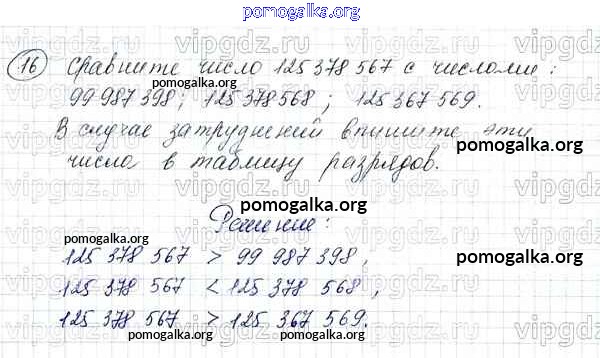 pomogalka.org
16 Сравните число 125 378 567 с числами:
99 987 398; 125 378 568; 125 367 569.
В случае затруднений впишите эти
числа в таблицу разрядов.
pomogalka.org
Решение:
pomogalka.org
125 378 567 > 99 987 398,
pomogalka.org
125 378 567 < 125 378 568,
125 378 567 > 125 367 569.
pomogalka.org